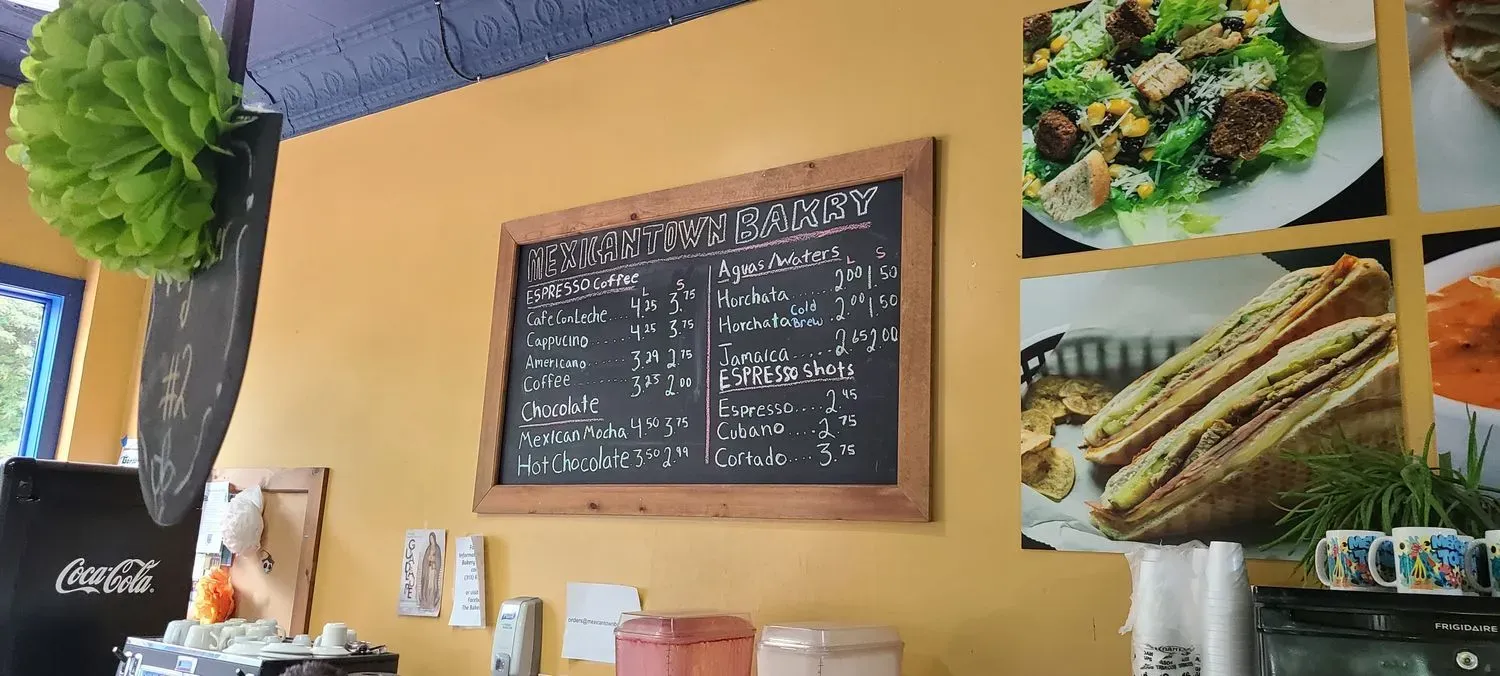 MEXICANTOWN BAKRY
ESPRESSO Coffee
L S
Cafe Con Leche.... 4.25 3.75
Cappucino...... 4.25 3.75
Americano........ 3.29 2.75
Coffee........ 3.25 2.00
Chocolate
Mexican Mocha 4.50 3.75
Hot Chocolate 3.50 2.99
Aguas/Waters L S
Horchata...... 2.00 1.50
Horchata Cold Brew . 2.00 1.50
Jamaica..... 2.65 2.00
ESPRESSO Shots
Espresso.... 2.45
Cubano.... 2.75
Cortado.... 3.75
#2
Coca-Cola
orders@mexicantownb
The Bake
FRIGIDAIRE